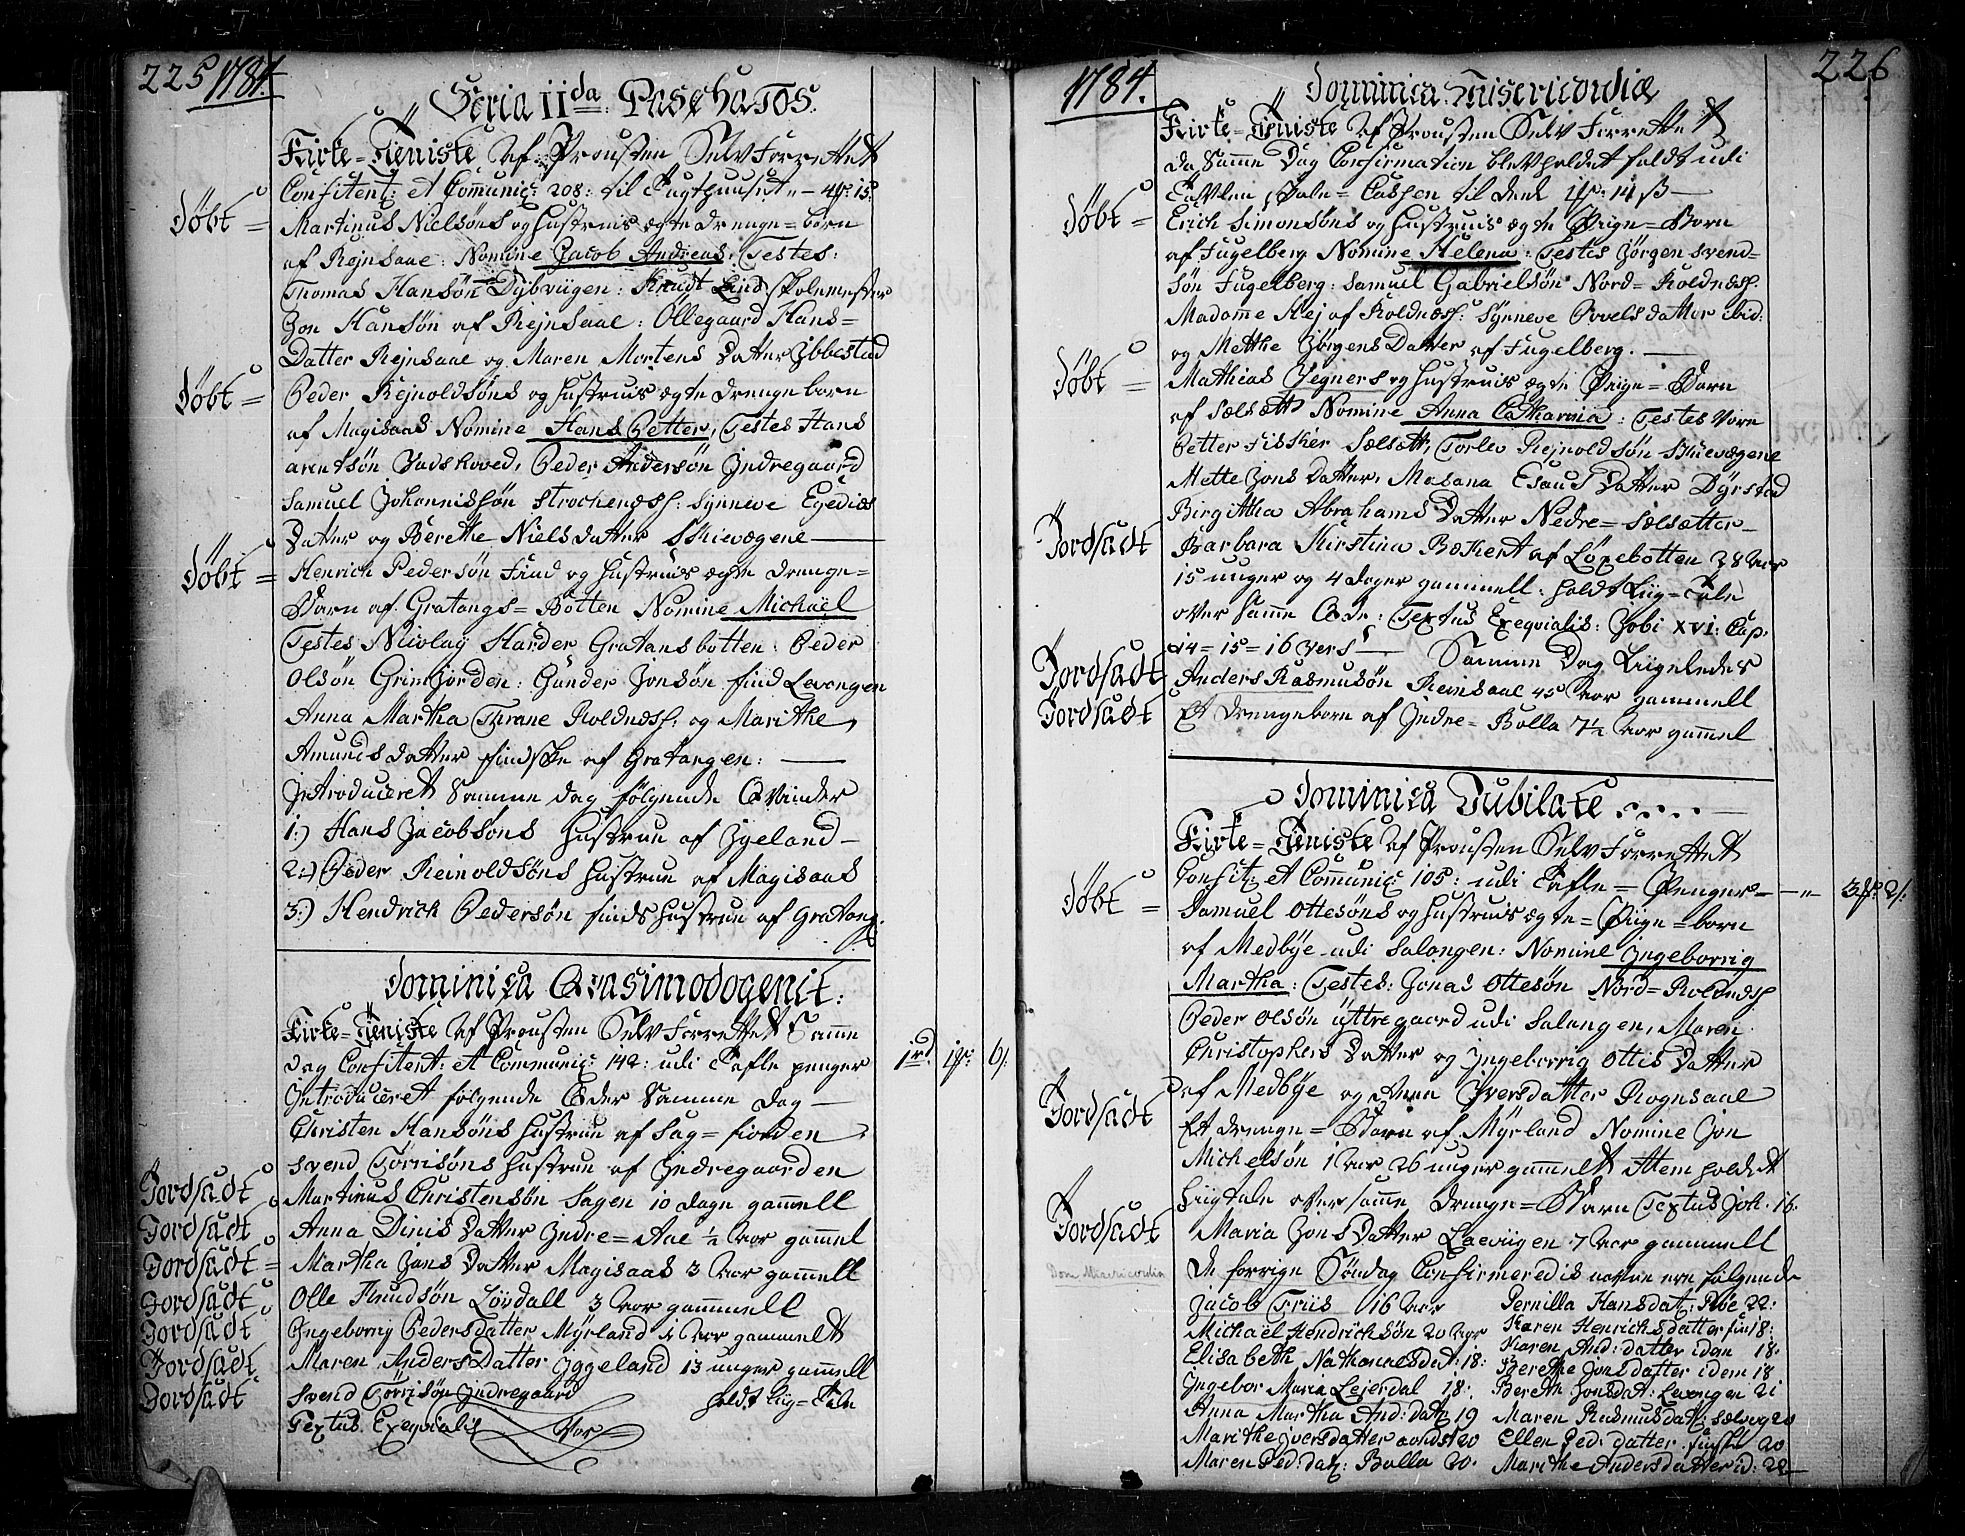 225 1784.
Feria IIda Paschatos.
Kirke=Tieniste af Prousten Selv Forrettet
Confitent: et Comunic: 208: til Tugthuuset
Døbt = Martinus Nielsøns og Hustrues ægte Drenge=børn
af Rejnsaae: Nomine Jacob Andreas, Testes:
Thomas Hansøn Dybviigen: Knudt Lind Skolemester
Jon Hansøn af Rejnsaae: Ollegaard Hans=
Datter Rejnsaae og Maren Mortens Datter Ibbestad
Døbt = Peder Rejnoldsøns og Hustrues ægte Drengebarn
af Magisaas Nomine Hans Petter, Testes Hans
Arentsøn, Peder Andersøn Indregaard
Samuel Johannissøn Strochenæss: Synneve Egedius
Datter og Berethe Nielsdatter Skievægene
Døbt = Henrich Pedersøn Find og Hustrues ægte Drenge=
Barn af Gratangs=Botten Nomine Michaël
Testes Nicolay Harder Gratansbotten: Peder
Olsøn Grimfjorden: Gunder Jonsøn find Levangen
Anna Martha Thrane Roldnæss: og Marithe
Amunds Datter findske af Gratangen:
Introduceret Samme Dag følgende Qvinder
1:) Hans Jacobsøns Hustrue af Igeland
2:) Peder Reinoldsøns Hustrue af Magisaas
3:) Hendrich Pedersøn finds Hustrue af Gratang:
Dominica Qvasimodogenit:
Kirke=Tieniste af Prousten Selv Forrettet Samme
Dag Confitent: et Communic: 142: udi Tafle penger 1rd. 6/:
Introduceret følgende Koner Samme Dag
Christen Hansøns Hustrue af Sag=fiorden
Svend Tørrisøns Hustrue af Indregaarden
Jordfædt Martinus Christensøn Sagen 10 Dage gammell
Jordfædt Anna Dinis Datter Indre=Aae ½ Aar gammel
Jordfædt = Martha Jons Datter Magisaas 3 Aar gammell
Jordfædt Olle Knudsøn Løvdall 3 Aar gammell
Jordfædt Ingeborrig Pedersdatter Myrland 1 Aar gammelt
Jordfædt Maren Anders Datter Iggeland 13 uger gammell
Jordfædt Svend Tørrisøn Indregaard holdt Liig=Tale
Textus Exeqvialis
1784. 226
Dominica Misericordiæ
Kirke=Tieniste af Prousten Selv Forrettet
da Samme Dag Confirmation blev holdet faldt udi
Døbt = Erich Simonsøns og Hustrues ægte Piige=Barn
af Fugelberg Nomine Helena: Testes Jørgen Svend=
søn Fugelberg: Samuel Gabrielsøn Nord=Roldnæss:
Madame Mej af Roldnæss: Synneve Povels datter ibid:
og Metthe Jørgens Datter af Fugelberg.
Døbt = Mathias Jegners og Hustrues ægte Piige=Barn
af Sælsætt Nomine Anna Catharina: Testes
Petter Fisker Sælsætt, Torlev Rejnoldsøn Skievægene
Mette Jons Datter, Masana Esaus Datter Dyrstad
Birgitha Abrahams Datter Nedre=Sælsætter
Jordfædt Barbara Kirstina Bækert af Løxebotten 38 Aar
15 uger og 4 Dager gammell: holdt Liig=Tale
over Samme: Textus Exeqvialis: Jobi XVI: Cap.
14=15=16 vers Samme Dag Liigeledes
Jordfædt Anders Rasmusøn Reinsaae 45 Aar gammell
Jordfædt Et Drengebarn af Indre=Bolla 7½ Aar gammel
Dominica Jubilate
Kirke=Tieniste af Prousten Selv Forrettet
Confit: et Communic: 105: udi Tafle=Penger
Døbt = Samuel Ottesøns og Hustrues ægte=Piige=barn
af Medbye udi Salangen: Nomine Ingeborrig
Martha: Testes: Jonas Ottesøn Nord=Roldnæss
Peder Olsøn Yttregaard udi Salangen, Maren
Christophers Datter og Ingeborrig Ottis Datter
af Medbye og Anna Iversdatter Rognsaae
Jordfædt Et Drenge=Barn af Myrland Nomine Jon
Michelsøn 1 Aar 26 uger gammelt Item holdet
Liigtale over Samme Drenge=Barn Textus Joh. 16.
Jordfædt Maria Jons Datter Laeviigen 7 Aar gammell
Dom Misericordia De forrige Søndag Confirmeredis navne ere følgende
Jacob Friis 16 Aar Pernilla Hansdat: Røe 22:
Michaël Hendrichsøn 20 Aar Karen Henrichsdatter fin 18:
Elisabeth Nathanaesdat: 18: Karen And: datter idem 18.
Ingebor Maria Lejerdal 18: Berethe Jonsdatter idem 18
Anna Martha And: dat: 19 Bereth Jonsdat: Levangen 21
Marithe Iversdatter 20 Maren Rasmusdat: 20
Maren Ped: dat: Bolla 20. Ellen Ped: datter finske 20
Marithe Andersdatter id: 22